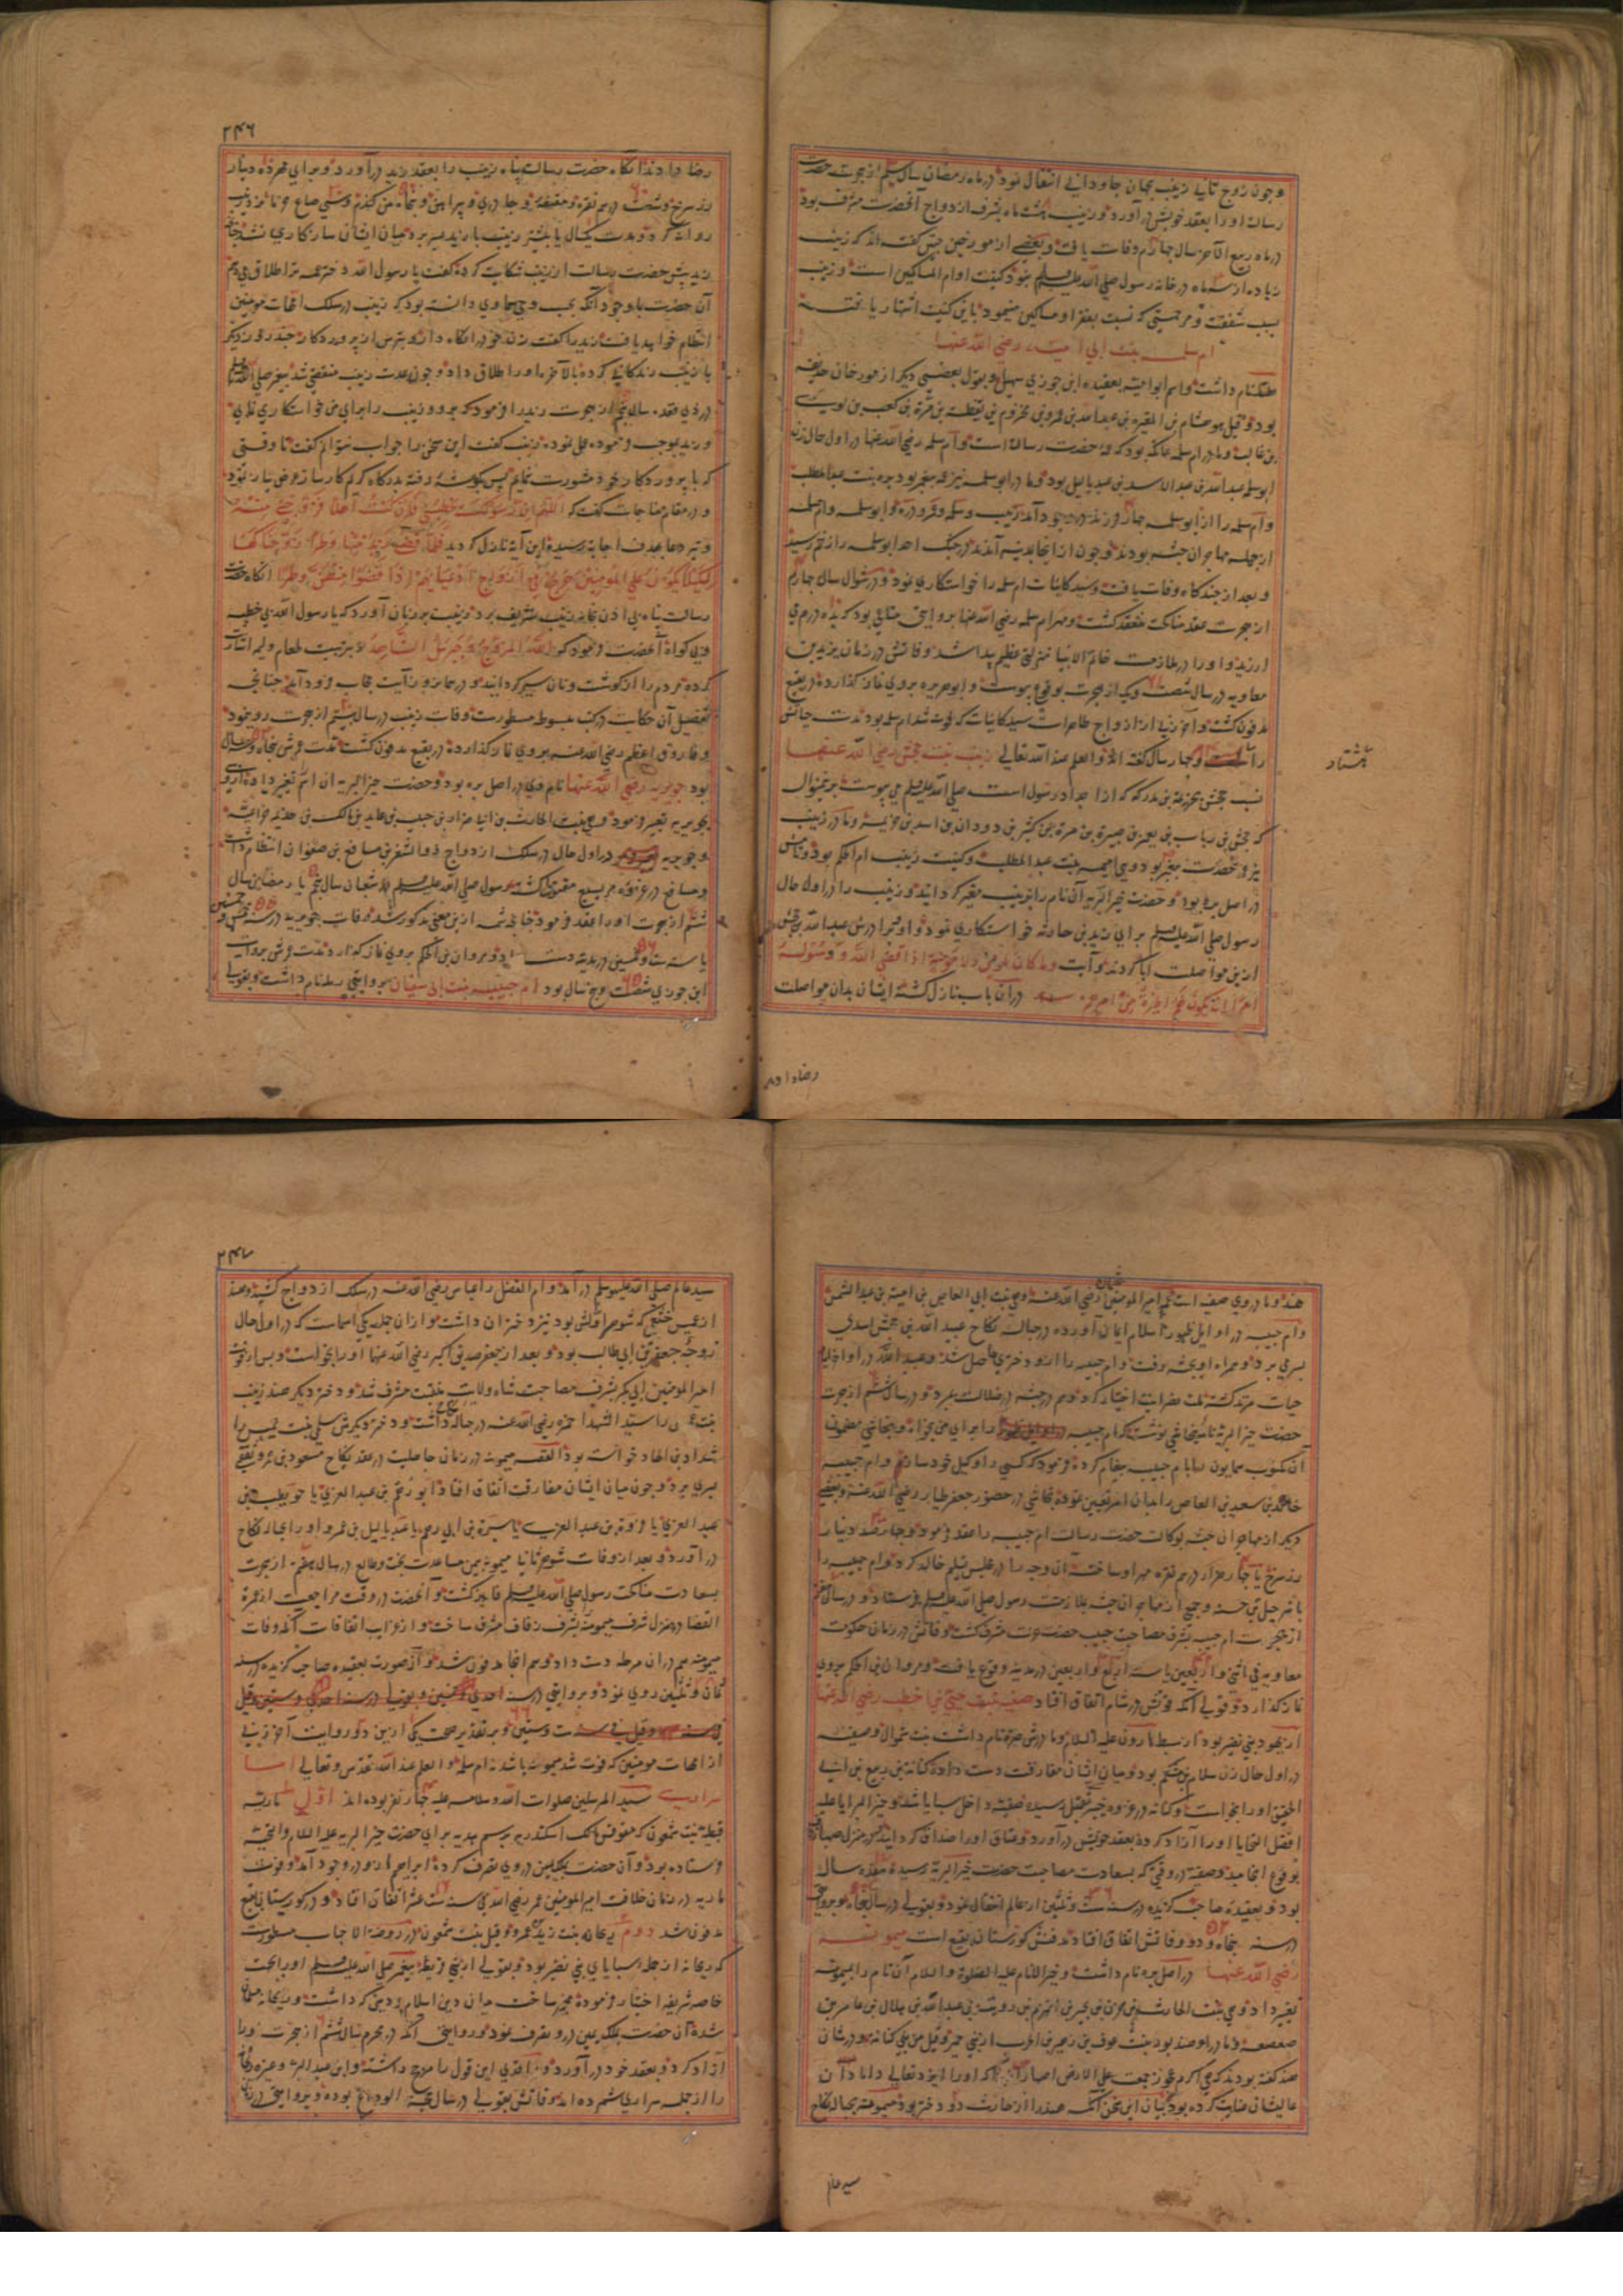 وچون زوج ثانی زینب بجهان جاودانی انتقال نمود در ماه رمضان سال سیم از هجرت حضرت
رسالت او را بعقد خویش در آورد و زینب هشت ماه بشرف ازدواج آنحضرت مشرف بود
در ماه ربیع الآخر سال چهارم وفات یافت و بعضی از مورخین چنین گفته اند که زینب
زیاده از سه ماه در خانه رسول صلی الله علیه وسلم نبود کنیت او ام المساکین است و زینب
بسبب شفقت و مرحمتی که نسبت بفقرا و مساکین مینمود باین کنیت اشتهار یافته
ام سلمه بنت ابی امیه رضی الله عنها
نام داشت و اسم ابو امیه بعقیده ابن جوزی سهیل و بقول بعضی دیگر از مورخان حذیفه
بود و قیل هو هشام بن المغیره بن عبد الله بن عمرو بن مخزوم بن یقظة بن مرة بن کعب بن لوی
بن غالب و مادر ام سلمه عاتکه بود که عمه حضرت رسالت است و ام سلمه رضی الله عنها در اول حال زن
ابو سلمه عبد الله بن عبد الاسد بن عبد یالیل بود و مادر ابو سلمه نیز عمه پیغمبر بود بره بنت عبد المطلب
و ام سلمه را از ابو سلمه چهار فرزند در وجود آمد زینب و سلمه و عمرو و دره و ابو سلمه و ام سلمه
از جمله مهاجران حبشه بودند و چون از انجا بمدینه آمدند در جنگ احد ابو سلمه را زخم رسید
و بعد از چند گاه وفات یافت و سید کاینات ام سلمه را خواستکاری نمود و در شوال سال چهارم
از هجرت عقد مناکحت منعقد گشت و مهر ام سلمه رضی الله عنها بروایتی متاعی بود که بده درم می
ارزید و او را در ملازمت خاتم الانبیا منزلتی عظیم پیدا شد و فاتش در زمان یزید بن
معاویه در سال شصت و یک از هجرت بوقوع پیوست و ابو هریره بروی نماز گذارده در بقیع
مدفون گشت و آخر زنی از ازواج طاهرات سید کاینات که فوت شد ام سلمه بود مدت حیاتش
را و چهار سال گفته اند والعلم عند الله تعالی زینب بنت جحش رضی الله عنها
هشتاد
نسب جحش بخزیمة بن مدرکه که از اجداد رسول است صلی الله علیه وسلم می پیوست برینمنوال
که جحش بن رباب بن یعمر بن صبرة بن مرة بن کثیر بن دودان بن اسد بن خزیمه و مادر زینب
نیز عمه حضرت پیغمبر بود وهی امیمه بنت عبد المطلب و کنیت زینب ام الحکم بود و نامش
در اصل بره بود و حضرت خیر البریه آن نام را بزینب مقرر کردانید و زینب را در اول حال
رسول صلی الله علیه وسلم برای زید بن حارثه خواستکاری نمود و او و برادرش عبد الله بن جحش
ازین مواصلت ابا کردند و آیت وما کان لمومن ولا مومنة اذا قضی الله ورسوله
امرا ان یکون لهم الخیرة من امرهم در آن باب نازل گشته ایشان بدان مواصلت
رضا دادند
۲۴۶
رضا دادند آنگاه حضرت رسالت پناه زینب را بعقد زید در آورد و برای مهر ده دینار
زر سرخ و شصت درم نقره و مقنعه و چادری و پیراهنی و پنجاه من گندم و سی صاع خرما نزد زینب
روانه کرد و مدت یکسال یا بیشتر زینب با زید بسر برد میان ایشان سازکاری نشد چنانچه
زید پیش حضرت رسالت از زینب شکایت کرده گفت یا رسول الله دختر عمه ترا طلاق میدهم
آن حضرت با وجود آنکه بحسب وحی سماوی دانسته بود که زینب در سلک امهات مومنین
انتظام خواهد یافت زید را گفت زن خود را نگاه دار و بترس از پروردگار چند روز دیگر
با زینب زندگانی کرده بالآخره او را طلاق داد و چون عدت زینب منقضی شد پیغمبر صلی الله علیه وسلم
در ذی قعده سال پنجم از هجرت زید را فرمود که برو و زینب را برای من خواستکاری نمای
و زید بموجب فرموده عمل نموده زینب گفت این سخن را جواب نتوانم گفت تا وقتی
که با پروردگار خود مشورت نمایم پس بگوشه رفته بدرگاه کریم کارساز عرض نیاز نمود
و در مقام مناجات گفت که اللهم ان رسولک خطبنی فان کنت اهلا فزوجنی منه
و تیر دعا بهدف اجابت رسیده این آیه نازل گردید فلما قضی زید منها وطرا زوجناکها
لکیلا یکون علی المومنین حرج فی ازواج ادعیائهم اذا قضوا منهن وطرا آنگاه حضرت
رسالت پناه بی اذن بخانه زینب تشریف برد و زینب بر زبان آورد که یا رسول الله بی خطبه
و بی گواه آنحضرت فرمود که الله المزوج وجبرئیل الشاهد و ترتیب طعام ولیمه اشارت
کرده مردم را از گوشت و نان سیر کردانید و در همان روز آیت حجاب فرود آمد چنانچه
تفصیل آن حکایت در کتب مبسوط مسطورست وفات زینب در سال بیستم از هجرت روی نمود
و فاروق اعظم رضی الله عنه بروی نماز گذارده در بقیع مدفون گشت مدت عمرش پنجاه و سه سال
بود جویریه رضی الله عنها نام وی در اصل بره بود و حضرت خیر البریه آن اسم تغییر داده او را
بجویریه تعبیر فرمود وهی بنت الحارث بن ابی ضرار بن حبیب بن عاید بن مالک بن جذیمه خزاعیه
و جویریه در اول حال در سلک ازدواج ذو الشفر بن مسافع بن صفوان انتظام داشت
و مسافع در غزوه مریسیع مقتول گشته رسول صلی الله علیه وسلم در شعبان سال پنجم یا رمضان سال
ششم از هجرت او را بعقد فرمود چنانچه شمه ازین معنی مذکور شد وفات جویریه در سنه خمس و خمسین
یا سنه ست و خمسین در مدینه دست داد و مروان بن الحکم بروی نماز گذارد مدت عمرش بروایت
ابن جوزی شصت و پنج سال بود ام حبیبه بنت ابی سفیان بروایتی رمله نام داشت و بقولی
هند و مادر وی صفیه است عمه امیر المومنین عثمان رضی الله عنه وهی بنت ابی العاص بن امیة بن عبد الشمس
و ام حبیبه در اوایل ظهور اسلام ایمان آورده در حباله نکاح عبید الله بن جحش اسدی
بسر می برد و همراه او بحبشه رفت و ام حبیبه را ازو دختری حاصل شد و عبید الله در اواخر ایام
حیات مرتد گشته ملت نصرانیت اختیار کرد و هم در حبشه در ضلالت بمرد و در سال ششم از هجرت
حضرت خیر البریه نامه بنجاشی نوشت که ام حبیبه را برای من بخواه و نجاشی مضمون
آن مکتوب همایون را بام حبیبه پیغام کرده فرمود که کسی را وکیل خود سازد و ام حبیبه
خالد بن سعید بن العاص را بدان امر تعیین نموده نجاشی در حضور جعفر طیار رضی الله عنه و بعضی
دیگر از مهاجران حبشه بوکالت حضرت رسالت ام حبیبه را عقد فرمود و چهارصد دینار
زر سرخ یا چهار هزار درم نقره مهر او ساخته آن وجه را در مجلس تسلیم خالد کرد و ام حبیبه را
با شرحبیل بن حسنه و جمعی از مهاجران حبشه بملازمت رسول صلی الله علیه وسلم فرستاد و در سال هفتم
از هجرت ام حبیبه بشرف مصاحبت حبیب حضرت عزت مشرف گشت و فاتش در زمان حکومت
معاویه فی اثنی و اربعین یا سنه اربع و اربعین در مدینه وقوع یافت و مروان بن الحکم بروی
نماز گذارد و قولی آنکه فوتش در شام اتفاق افتاد صفیه بنت حیی بن اخطب رضی الله عنها
از یهود بنی نضیر بود از سبط هارون علیه السلام و مادرش ضره نام داشت بنت شموال و صفیه
در اول حال زن سلام بن مشکم بود و میان ایشان مفارقت دست داده کنانه بن ربیع بن ابی
الحقیق او را بخواست و کنانه در غزوه خیبر بقتل رسیده صفیه داخل سبایا شد و خیر البرایا علیه
افضل التحایا او را آزاد کرده بعقد خویش در آورد و عتاق او را صداق کردانید و در منزل صهبا زفاف
بوقوع انجامید و صفیه در وقتی که بسعادت مصاحبت حضرت خیر البریه رسید هفده ساله
بود و بعقیده صاحب گزیده در سنه ست و ثلثین از عالم انتقال نمود و بقولی در سال پنجاه و بروایتی
در سنه پنجاه و دو وفاتش اتفاق افتاد مدفنش گورستان بقیع است میمونه
رضی الله عنها در اصل بره نام داشت و خیر الانام علیه الصلوة والسلام آن نام را بمیمونه
تغییر داد وهی بنت الحارث بن حزن بن بحیر بن الهزم بن رویبة بن عبد الله بن هلال بن عامر بن
صعصعه و مادر او هند بود بنت عوف بن زهیر بن الحرث از بنی حمیر و قیل من بنی کنانه و در شان
هند گفته بودند که هی اکرم عجوز جمعت علی الارض اصهارا که او را ایزد تعالی دامادان
عالیشان عنایت کرده بود و بیان این سخن آنکه هند را از حارث دو دختر بود میمونه بحباله نکاح
سید عالم
۲۴۷
سید عالم صلی الله علیه وسلم در آمد و ام الفضل را عباس رضی الله عنه در سلک ازدواج کشید و هند
از عمیس خثعمی که شوهر اولش بود نیز دختران داشت و از ان جمله یکی اسما ست که در اول حال
زوجه جعفر بن ابی طالب بود و بعد از جعفر صدیق اکبر رضی الله عنها او را بخواست و پس از فوت
امیر المومنین ابی بکر بشرف مصاحبت شاه ولایت منقبت مشرف شد و دختر دیگر هند زینب
بنت عمیس را سید الشهدا حمزه رضی الله عنه در حباله نکاح داشت و دختر دیگرش سلمی بنت عمیس را
شداد بن الهاد خواسته بود القصه میمونه در زمان جاهلیت در عقد نکاح مسعود بن عمرو ثقفی
بسر می برد و چون میان ایشان مفارقت اتفاق افتاد ابو رهم بن عبد العزی یا حویطب بن
عبد العزی یا فروة بن عبد العزی یا سبرة بن ابی رهم یا عبد یالیل بن عمرو او را بحباله نکاح
در آورد و بعد از وفات شوهر ثانیا میمونه بیمن مساعدت بخت و طالع در سال هفتم از هجرت
بسعادت مناکحت رسول صلی الله علیه وسلم فایز گشت و آنحضرت در وقت مراجعت از عمرة
القضا در منزل شرف میمونه بشرف زفاف مشرف ساخت و از غرایب اتفاقات آنکه وفات
میمونه هم در ان مرحله دست داد و هم انجا مدفون شد و آن صورت بعقیده صاحب گزیده در سنه
ثمان و ثلثین روی نمود و بروایتی در سنه احدی و خمسین و بقولی در سنه احدی و ستین و قیل
فی سنه ست و ستین و بر تقدیر صحت یکی ازین دو روایت آخر زنی
از امهات مومنین که فوت شد میمونه باشد نه ام سلمه والعلم عند الله تقدس وتعالی اما
سراری سید المرسلین صلوات الله و سلامه علیه چهار نفر بوده اند اول ماریه
قبطیه بنت شمعون که مقوقس مالک اسکندریه برسم هدیه برای حضرت خیر البریه علیه السلام والتحیه
فرستاده بود و آن حضرت بملک یمین در وی تصرف کرده ابراهیم ازو در وجود آمد و فوت
ماریه در زمان خلافت امیر المومنین عمر رضی الله عنه فی سنه ست عشر اتفاق افتاد و در گورستان بقیع
مدفون شد دوم ریحانه بنت زید بن عمرو و قیل بنت شمعون در روضة الاحباب مسطورست
که ریحانه از جمله سبایای بنی نضیر بود و بقولی از بنی قریظه پیغمبر صلی الله علیه وسلم او را بجهت
خاصه شریفه اختیار فرموده مخیر ساخت میان دین اسلام و دینی که داشت و ریحانه مسلمان
شده آن حضرت بملک یمین در و تصرف نمود و روایتی آنکه در محرم سال ششم از هجرت او را
آزاد کرد و بعقد خود در آورد و واقدی این قول را مرجح داشته و ابن عبد البر و غیره ریحانه
را از جمله سراری شمرده اند وفاتش بقولی در سال حجة الوداع بوده و بروایتی در زمان